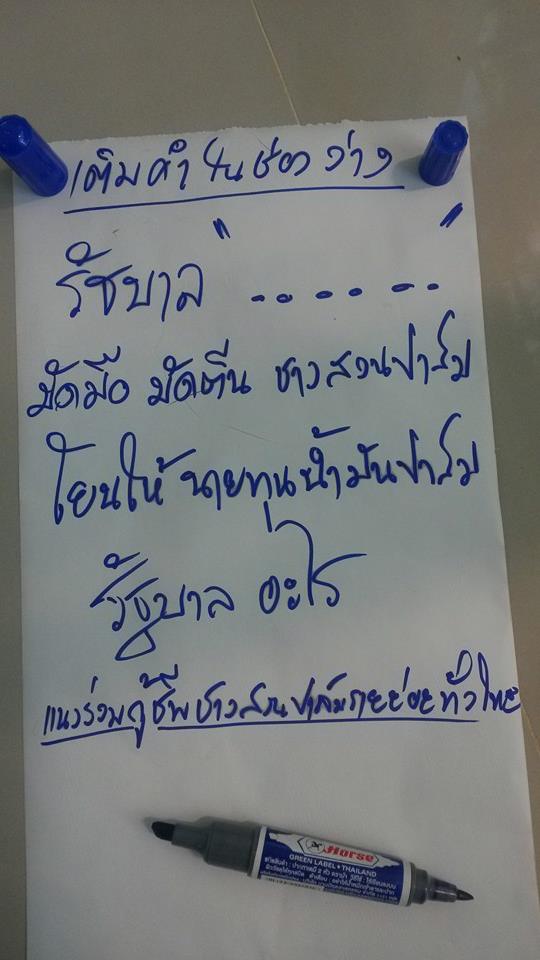 เติมคำในช่องว่าง
รัฐบาล " ...... "
มัดมือ มัดตีน ชาวสวนปาล์ม
โยนให้ นายทุนน้ำมันปาล์ม
รัฐบาล อะไร
แนวร่วมกู้ชีพชาวสวนปาล์มรายย่อยทั่วไทย
Horse
GREEN LABEL • THAILAND